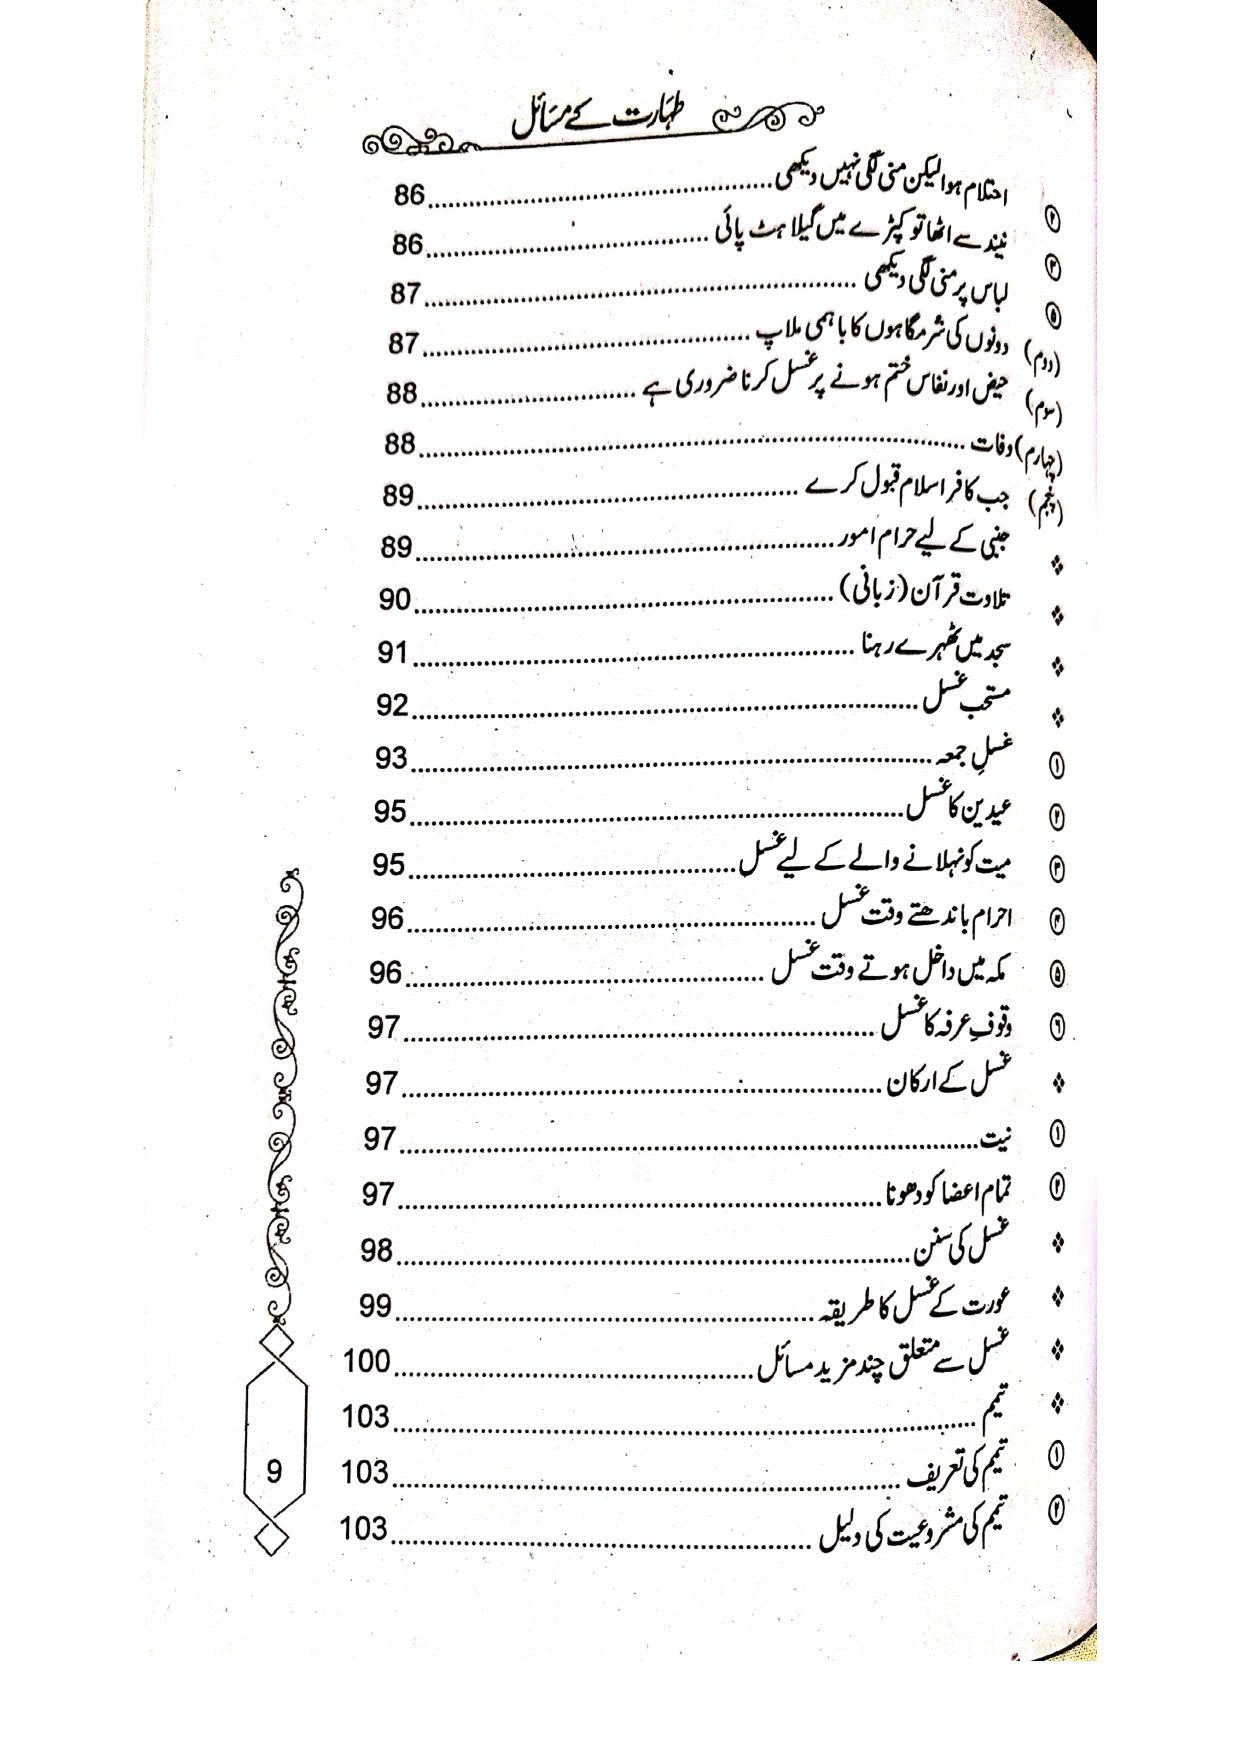 طہارت کے مسائل
۲ احتلام ہوا لیکن منی لگی نہیں دیکھی 86
۳ نیند سے اٹھا تو کپڑے میں گیلاہٹ پائی 86
۵ لباس پر منی لگی دیکھی 87
(دوم) دونوں کی شرمگاہوں کا باہمی ملاپ 87
(سوم) حیض اور نفاس ختم ہونے پر غسل کرنا ضروری ہے 88
(چہارم) وفات 88
(پنجم) جب کافر اسلام قبول کرے 89
❖ جنبی کے لیے حرام امور 89
❖ تلاوت قرآن (زبانی) 90
❖ مسجد میں ٹھہرے رہنا 91
❖ مستحب غسل 92
① غسلِ جمعہ 93
② عیدین کا غسل 95
③ میت کو نہلانے والے کے لیے غسل 95
④ احرام باندھتے وقت غسل 96
⑤ مکہ میں داخل ہوتے وقت غسل 96
⑥ وقوفِ عرفہ کا غسل 97
❖ غسل کے ارکان 97
① نیت 97
② تمام اعضا کو دھونا 97
❖ غسل کی سنن 98
❖ عورت کے غسل کا طریقہ 99
❖ غسل سے متعلق چند مزید مسائل 100
❖ تیمم 103
① تیمم کی تعریف 103
② تیمم کی مشروعیت کی دلیل 103
9